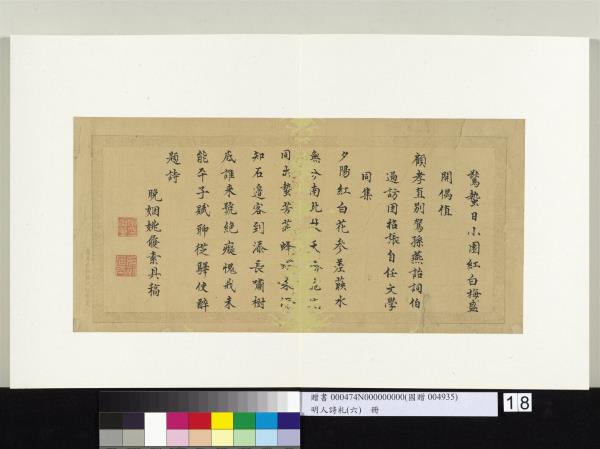 驚蟄日小園紅白梅盛
開偶值
顧孝直別駕孫燕詒詞伯
過訪因招張自任文學
同集
夕陽紅白花參差蘸水
無分南北枝天
同出蟄芳菲蜂
知石邊客到添長嘯樹
底誰來號絕癡愧我未
能卒子賦聊從驛使醉
題詩
晚姻姚履素具稿
贈書 000474N000000000(國贈 004935)
明人詩札(六) 冊
18